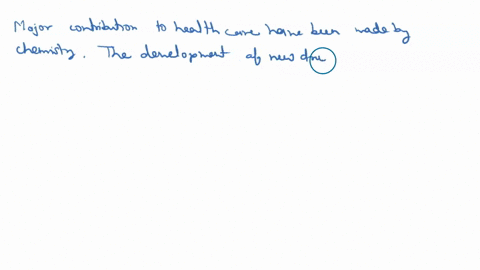 Major contribution to health care have been made by
chemistry. The development of new